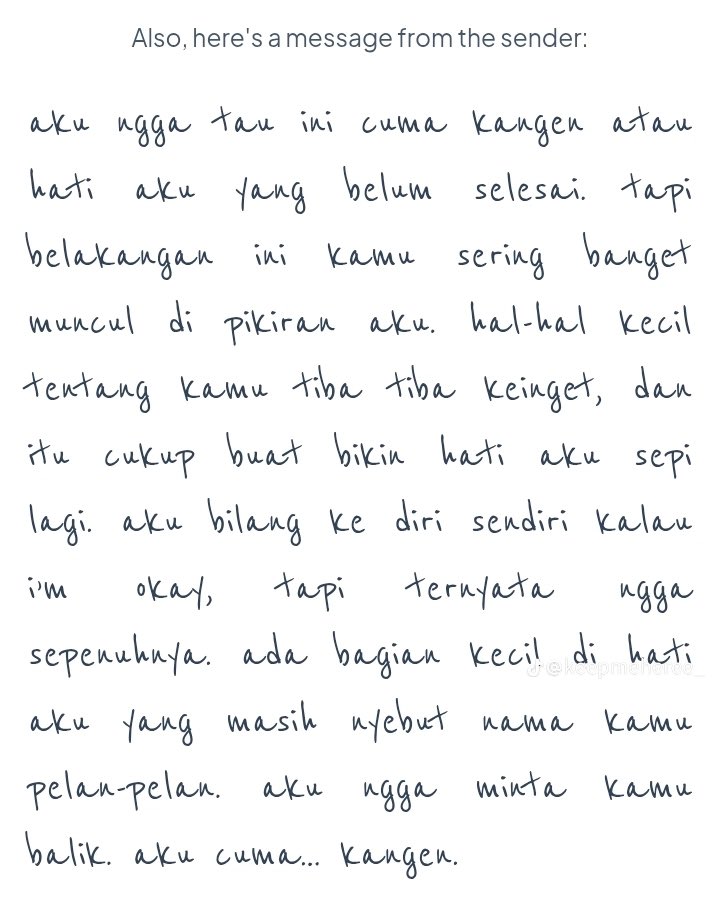 Also, here's a message from the sender:
aku ngga tau ini cuma kangen atau
hati aku yang belum selesai. tapi
belakangan ini kamu sering banget
muncul di pikiran aku. hal-hal kecil
tentang kamu tiba tiba keinget, dan
itu cukup buat bikin hati aku sepi
lagi. aku bilang ke diri sendiri kalau
i'm okay, tapi ternyata ngga
sepenuhnya. ada bagian kecil di hati
aku yang masih nyebut nama kamu
pelan-pelan. aku ngga minta kamu
balik. aku cuma... kangen.